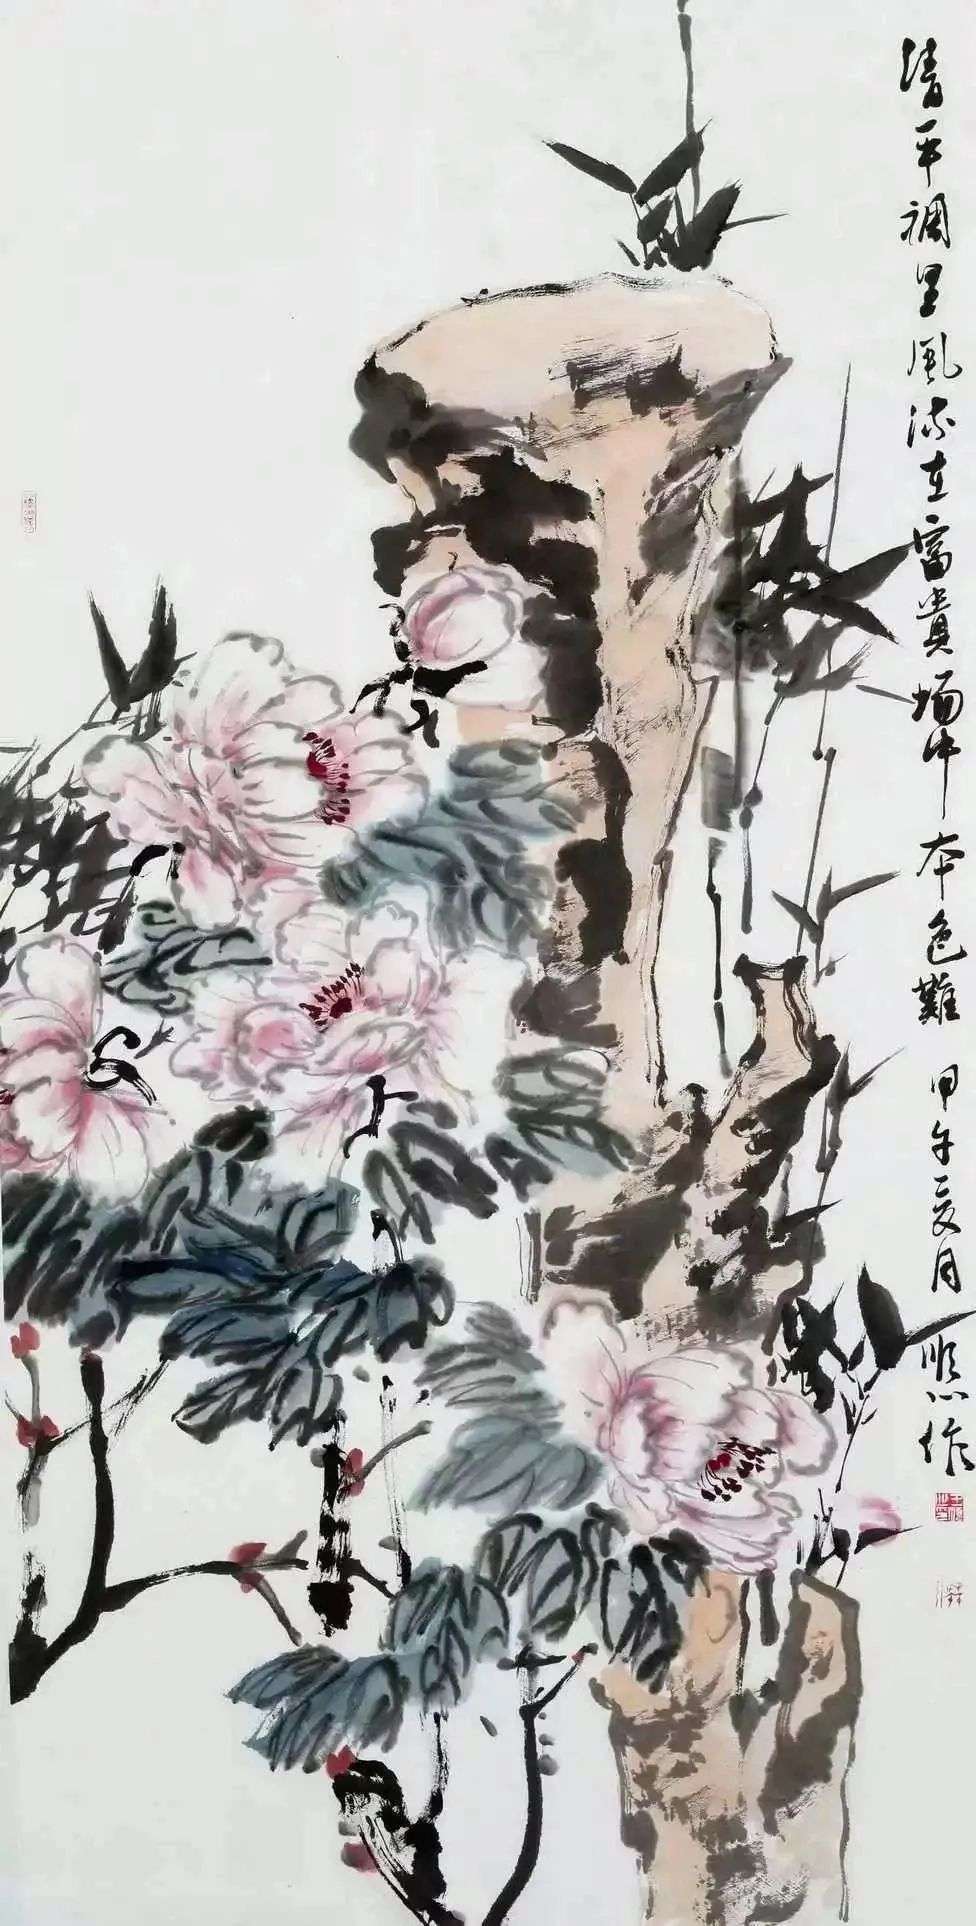 清平調里風流在富貴場中本色難 甲午夏月 順心作